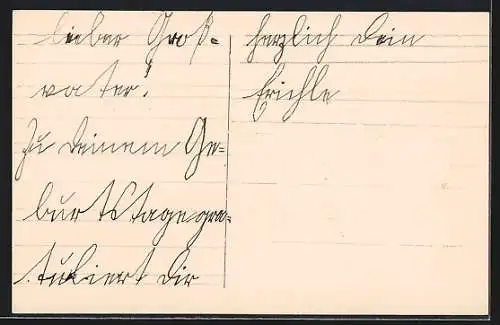 Lieber Groß-
vater!
Zu Deinem Ge-
burtstage gra-
tuliert Dir
herzlich Dein
Erichle